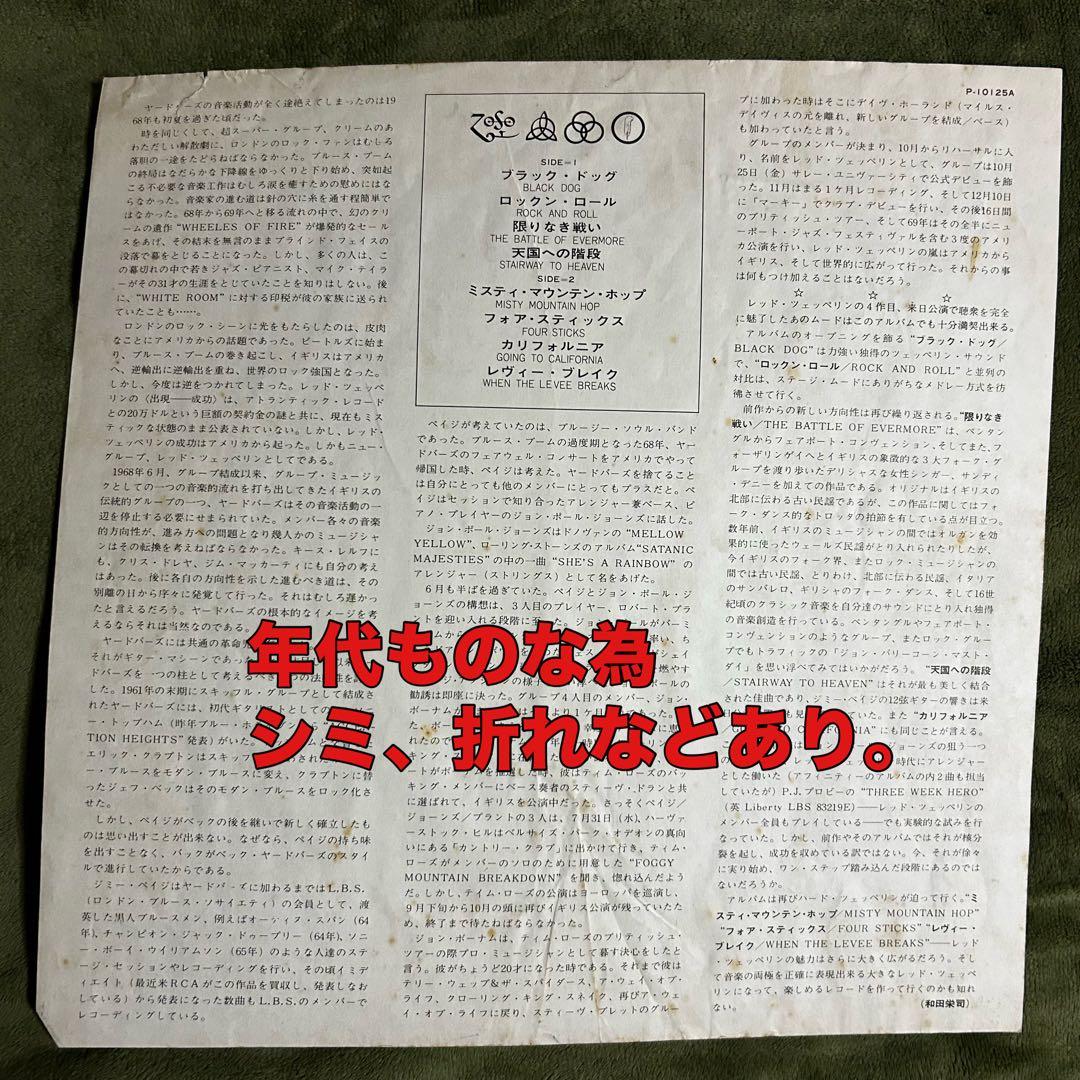 ヤードバーズの音楽活動が全く途絶えてしまったのは19
68年も初夏を過ぎた頃だった。
時を同じくして、超スーパー・グループ、クリームのあ
わただしい解散劇に、ロンドンのロック・ファンはむしろ
落胆の一途をたどらねばならなかった。ブルース・ブーム
の終局はなだらかな下降線をゆっくりと下り始め、突如起
こる不必要な音楽工作はむしろ涙を癒すための慰めにはな
らなかった。音楽家の進む道は針の穴に糸を通す程簡単で
はなかった。68年から69年へと移る流れの中で、幻のクリ
ームの遺作"WHEELES OF FIRE"が爆発的なセール
スをあげ、その結末を無言のままブラインド・フェイスの
没落で幕をとじることになった。しかし、多くの人は、こ
の幕切れの中で若きジャズ・ピアニスト、マイク・テイラ
ーがその31才の生涯をとじていたことを知りはしない。後
に、"WHITE ROOM"に対する印税が彼の家族に送られ
ていたことも……。
ロンドンのロック・シーンに光をもたらしたのは、皮肉
なことにアメリカからの話題であった。ビートルズに始ま
り、ブルース・ブームの巻き起こし、イギリスはアメリカ
へ、逆輸出に逆輸出を重ね、世界のロック強国となった。
しかし、今度は逆をつかれてしまった。レッド・ツェッペ
リンの〈出現——成功〉は、アトランティック・レコード
との20万ドルという巨額の契約金の謎と共に、現在もミス
ティックな状態のまま公表されていない。しかし、レッド・
ツェッペリンの成功はアメリカから起った。しかもニュー・
グループ、レッド・ツェッペリンとしてである。
1968年6月、グループ結成以来、グループ・ミュージッ
クとしての一つの音楽的流れを打ち出してきたイギリスの
伝統的グループの一つ、ヤードバーズはその音楽活動の一
辺を停止する必要にせまられていた。メンバー各々の音楽
的方向性が、進み方への問題となり幾人かのミュージシャ
ンはその転換を考えねばならなかった。キース・レルフに
も、クリス・ドレヤ、ジム・マッカーティにも自分の考え
はあった。後に各自の方向性を示した進むべき道は、その
別離の日から序々に発覚して行った。それはむしろ遅かっ
たと言えるだろう。ヤードバーズの根本的なイメージを考
えるならそれは当然なのである。
ヤードバーズには共通の革命
それがギター・マシーンであっ
ズを一つの柱として考えるべき
した。1961年の末期にスキッフル・グループとして結成さ
れたヤードバーズには、初代ギタリストとしての
ー・トップハム（昨年ブルー・ホ
TION HEIGHTS"発表）がいた。
エリック・クラプトンはスキッフ
ー・ブルースをモダン・ブルースに変え、クラプトンに替
ったジェフ・ベックはそのモダン・ブルースをロック化さ
せた。
しかし、ペイジがベックの後を継いで新しく確立したも
のは思い出すことが出来ない。なぜなら、ペイジの持ち味
を出すことなく、バックがベック・ヤードバーズのスタイ
ルで進行していたからである。
ジミー・ペイジはヤードバーズに加わるまではL.B.S.
（ロンドン・ブルース・ソサイエティ）の会員として、渡
英した黒人ブルースメン、例えばオーティス・スパン（64
年）、チャンピオン・ジャック・デュープリー（64年）、ソニ
ー・ボーイ・ウイリアムソン（65年）のような人達のステ
ージ・セッションやレコーディングを行い、その頃イミディ
エイト（最近米RCAがこの作品を買収し、発表しなお
している）から発表になった数曲もL.B.S.のメンバーで
レコーディングしている。
SIDE=1
ブラック・ドッグ
BLACK DOG
ロックン・ロール
ROCK AND ROLL
限りなき戦い
THE BATTLE OF EVERMORE
天国への階段
STAIRWAY TO HEAVEN
SIDE=2
ミスティ・マウンテン・ホップ
MISTY MOUNTAIN HOP
フォア・スティックス
FOUR STICKS
カリフォルニア
GOING TO CALIFORNIA
レヴィー・ブレイク
WHEN THE LEVEE BREAKS
ペイジが考えていたのは、ブルージー・ソウル・バンド
であった。ブルース・ブームの過度期となった68年、ヤー
ドバーズのフェアウェル・コンサートをアメリカでやって
帰国した時、ペイジは考えた。ヤードバーズを捨てること
は自分にとっても他のメンバーにとってもプラスだと。ペ
イジはセッションで知り合ったアレンジャー兼ベース、ピ
アノ・プレイヤーのジョン・ポール・ジョーンズに話した。
ジョン・ポール・ジョーンズはドノヴァンの"MELLOW
YELLOW"、ローリング・ストーンズのアルバム"SATANIC
MAJESTIES"の中の一曲"SHE'S A RAINBOW"の
アレンジャー（ストリングス）として名をあげた。
6月も半ばを過ぎていた。ペイジとジョン・ポール・ジ
ョーンズの構想は、3人目のプレイヤー、ロバート・プラ
ントを迎い入れる段階に至った。ジョールはバーミ
勧誘は即座に決った。グループ4人目のメンバー、ジョン・
ートがボーナムを推選した時、彼はティム・ローズのバッ
キング・メンバーにベース奏者のスティーヴ・ドランと共
に選ばれて、イギリスを公演中だった。さっそくペイジ／
ジョーンズ／プラントの3人は、7月31日（水）、ハーヴァ
ーストック・ヒルはベルサイズ・パーク・オデオンの真向
いにある「カントリー・クラブ」に出かけて行き、ティム・
ローズがメンバーのソロのために用意した"FOGGY
MOUNTAIN BREAKDOWN"を聞き、惚れ込んだよう
だ。しかし、テイム・ローズの公演はヨーロッパを巡演し、
9月下旬から10月の頭に再びイギリス公演が残っていたた
め、終了まで待たねばならなかった。
ジョン・ボーナムは、ティム・ローズのブリティッシュ・
ツアーの際プロ・ミュージシャンとして暮す決心をしたと
言う。彼がちょうど20才になった時である。それまで彼は
テリー・ウェッブ&ザ・スパイダース、ア・ウェイ・オブ・
ライフ、クローリング・キング・スネイク、再びア・ウェ
イ・オブ・ライフに戻り、スティーヴ・ブレットのグルー
P-10125A
プに加わった時はそこにデイヴ・ホーランド（マイルス・
デイヴィスの元を離れ、新しいグループを結成／ベース）
も加わっていたと言う。
グループのメンバーが決まり、10月からリハーサルに入
り、名前をレッド・ツェッペリンとして、グループは10月
25日（金）サレー・ユニヴァーシティで公式デビューを飾
った。11月はまる1ケ月レコーディング、そして12月10日
に「マーキー」でクラブ・デビューを行い、その後16日間
のブリティッシュ・ツアー、そして69年はその全半にニュ
ーポート・ジャズ・フェスティヴァルを含む3度のアメリ
カ公演を行い、レッド・ツェッペリンの嵐はアメリカから
イギリス、そして世界的に広がって行った。それからの事
は何もつけ加えることはないだろう。
☆ ☆ ☆
レッド・ツェッペリンの4作目、来日公演で聴衆を完全
に魅了したあのムードはこのアルバムでも十分満契出来る。
アルバムのオープニングを飾る"ブラック・ドッグ／
BLACK DOG"は力強い独得のツェッペリン・サウンド
で、"ロックン・ロール／ROCK AND ROLL"と並列の
対比は、ステージ・ムードにありがちなメドレー方式を彷
彿させて行く。
前作からの新しい方向性は再び繰り返される。"限りなき
戦い／THE BATTLE OF EVERMORE"は、ペンタン
グルからフェアポート・コンヴェンション、そしてまた、フ
ォーザリンゲイへとイギリスの象徴的な3大フォーク・グ
ループを渡り歩いたデリシャスな女性シンガー、サンディ
・デニーを加えての作品である。オリジナルはイギリスの
北部に伝わる古い民謡であるが、この作品に関してはフォ
ーク・ダンス的なトロッタの拍節を有している点が目立つ。
数年前、イギリスのミュージシャンの間ではオルガンを効
果的に使ったウェールズ民謡がとり入れられたりしたが、
今イギリスのフォーク界、またロック・ミュージシャンの
間では古い民謡、とりわけ、北部に伝わる民謡、イタリア
のサンパレロ、ギリシャのフォーク・ダンス、そして16世
紀頃のクラシック音楽を自分達のサウンドにとり入れ独得
の音楽創造を行っている。ペンタングルやフェアポート・
コンヴェンションのようなグループ、またロック・グルー
プでもトラフィックの「ジョン・バリーコーン・マスト・
ダイ」を思い浮べてみてはいかがだろう。"天国への階段
／STAIRWAY TO HEAVEN"はそれが最も美しく結合
された佳曲であり、ジミー・ペイジの12弦ギターの響きは米
ていた。また"カリフォルニア
CALIFORNIA"にも同じことが言える。
ジョーンズの狙う一つ
時代にアレンジャー
とした働いた（アフィニティーのアルバムの内2曲も担当
していたが）P.J.プロビーの"THREE WEEK HERO"
（英 Liberty LBS 83219E）——レッド・ツェッペリンの
メンバー全員もプレイしている——でも実験的な試みを行
なっていた。しかし、前作やそのアルバムではそれが核分
裂を起し、成功を収めている訳ではない。今、それが徐々
に実り始め、ワン・ステップ踏み込んだ段階にあるのでは
ないだろうか。
アルバムは再びハード・ツェッペリンが迫って行く。"ミ
スティ・マウンテン・ホップ／MISTY MOUNTAIN HOP"
"フォア・スティックス／FOUR STICKS""レヴィー・
ブレイク／WHEN THE LEVEE BREAKS"——レッド
・ツェッペリンの魅力はさらに大きく広がるだろう。そし
て音楽の両極を正確に表現出来る大きなレッド・ツェッペ
リンになって、楽しめるレコードを作って行くのかも知れ
ない。
（和田栄司）
年代ものな為
シミ、折れなどあり。